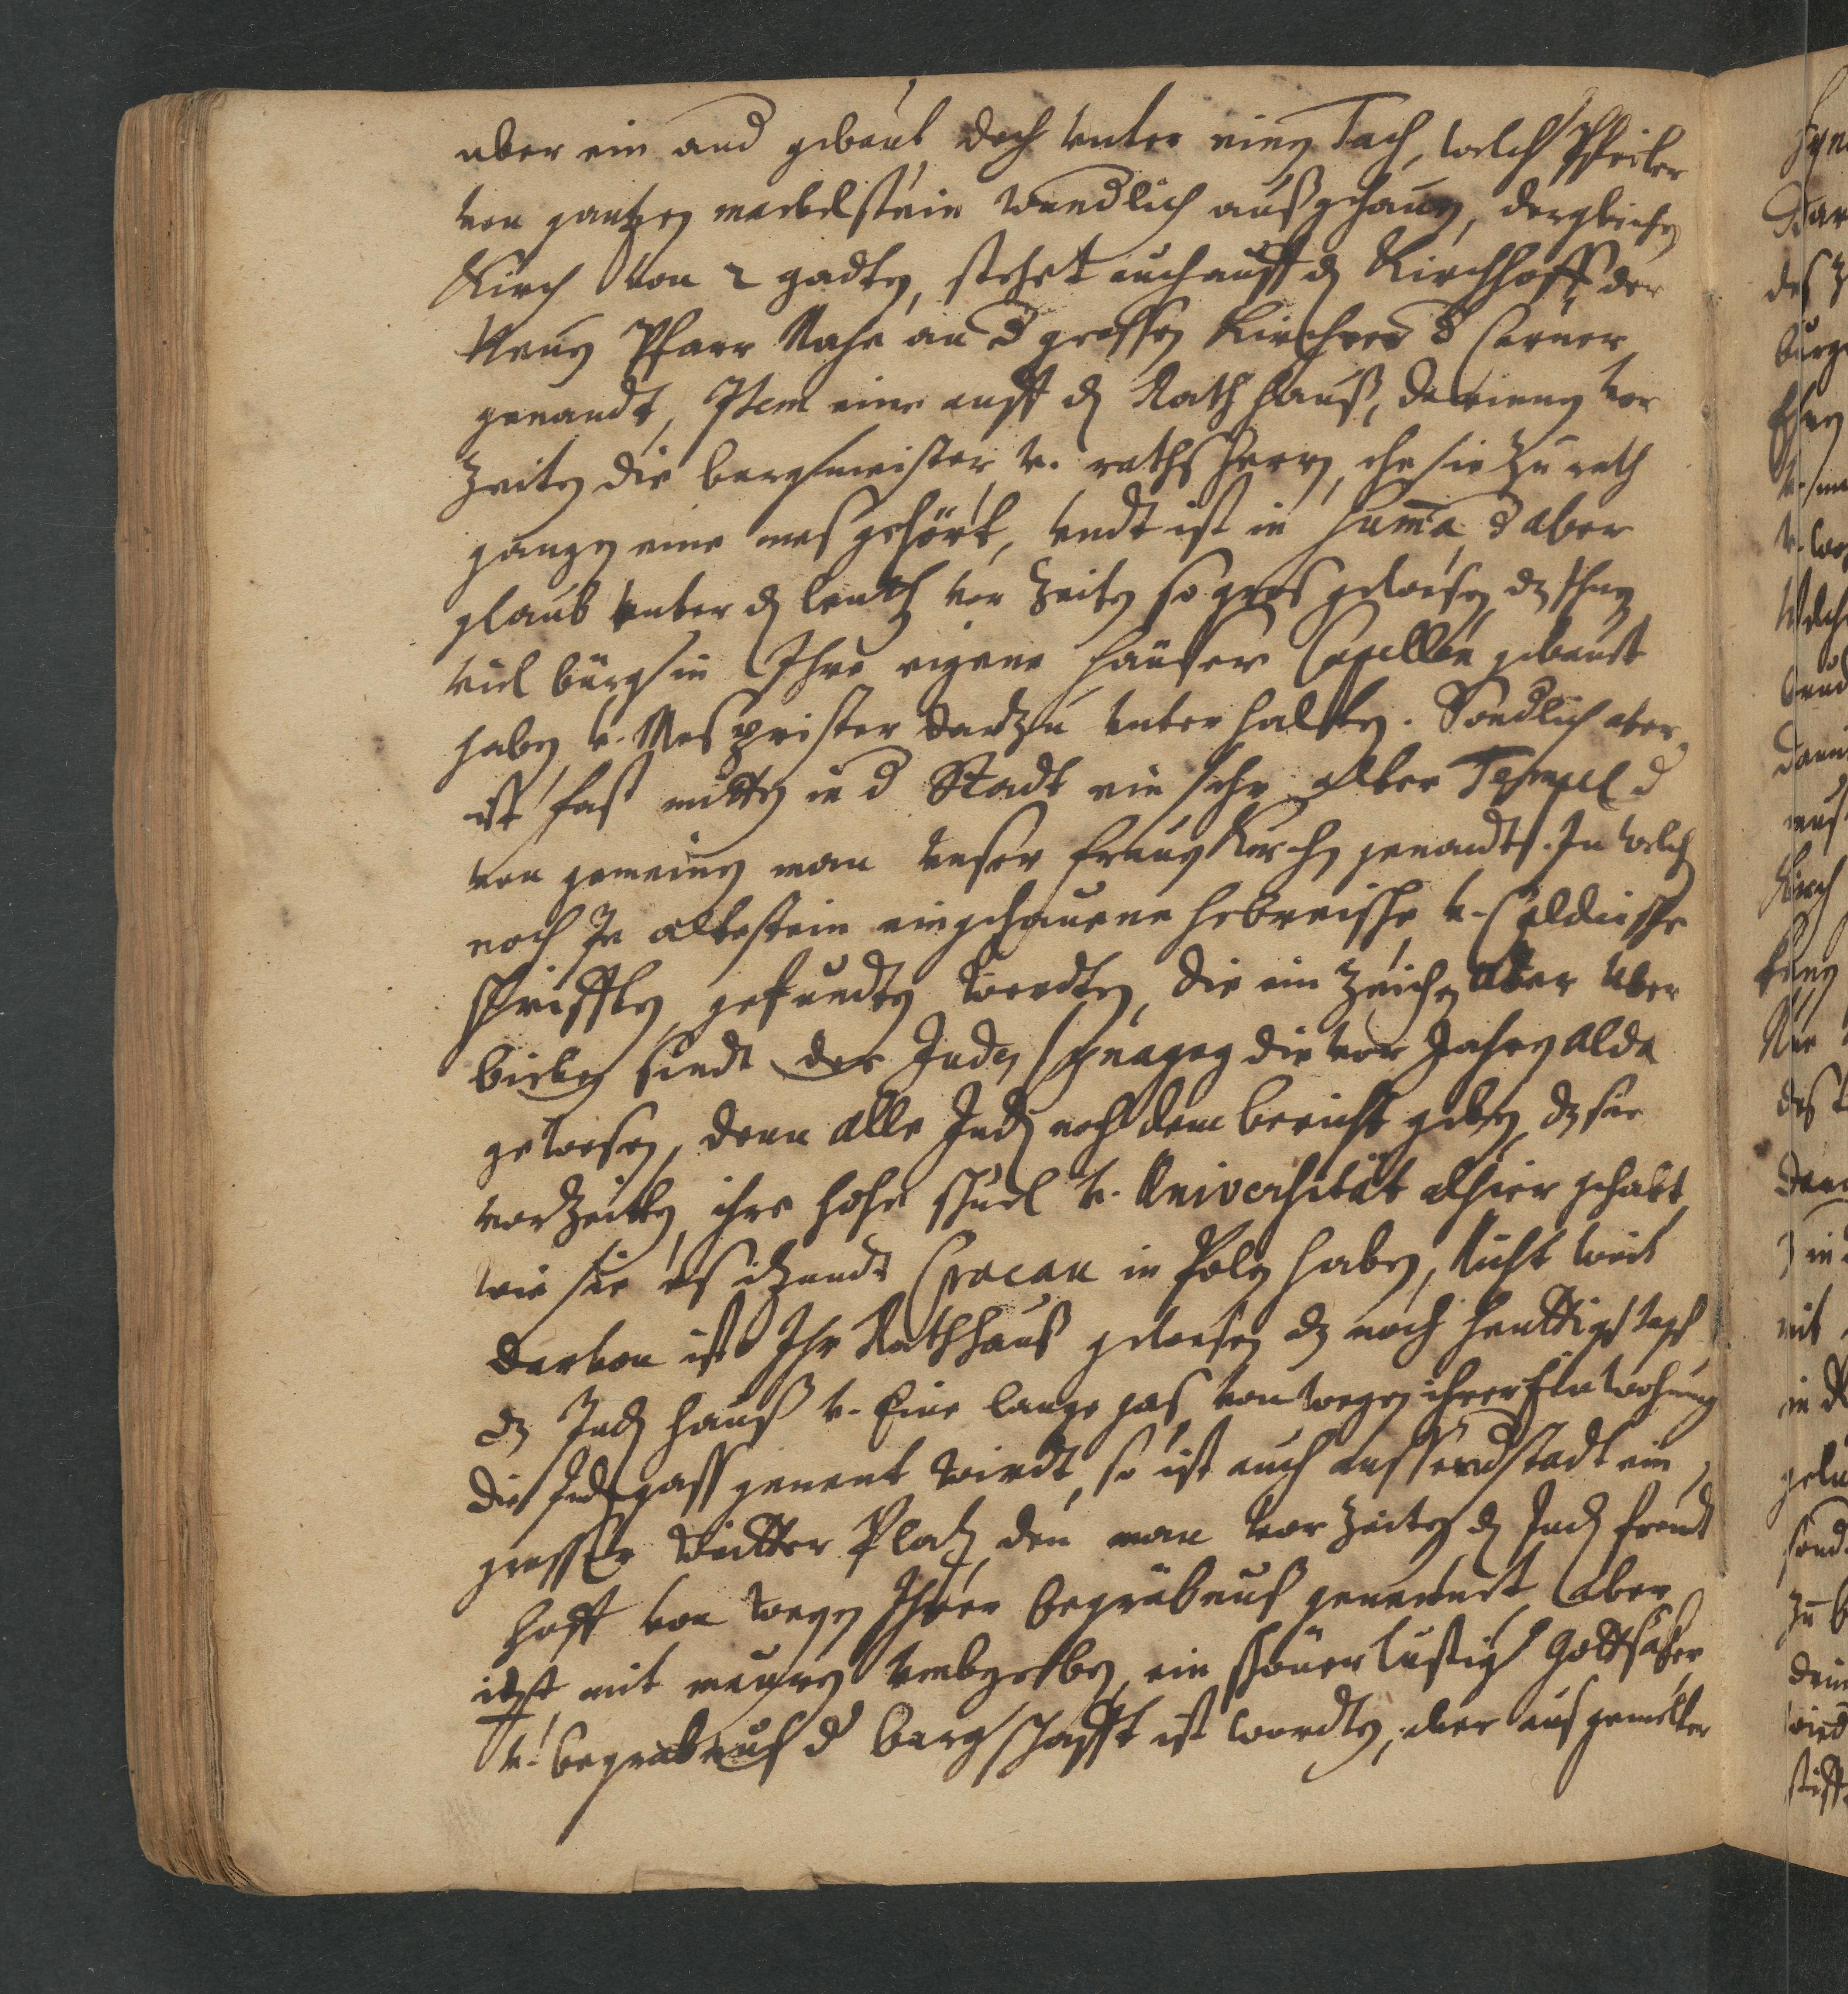 uber ein and gebaut, doch unter einen Tach, welch Pfeiler
von gantzen marbelstein wundlich außgehauen, dergleichen
Kirch von 2 gadten, stehet auch auff den Kirchhoff der
Neuen Pfarr Nahe an d grossen Kirch der Carner
genandt, Item eine auff den Rath hauß, darinnen vor
Zeiten die burgmeister v. raths herrn, ehe sie zu rath
gangen eine mes gehört, undt ist in summa d aber
glaub unter den leuthen vor Zeiten so gros gewesen dz Ihrer
viel bürg in Ihre eigene häuser Capellen gebauet
haben v. Mes Prister dartzu unterhalten. Sondlich aber
ist fast mitten in d Stadt ein sehr alter Tempel d
von gemeinen man unser frauen Kirch genandt. In welch
noch In altestein eingehauene hebreische v. Caldeische
schrifften gefunden werdten, die ein Zeichen aber uber
bieben sindt der Juden synagog die vor Jahren alda
gewesen, denn alle Juden noch dem bericht geben dz sie
vor Zeitten ihre hohe schuel v. Universitat alhier gehabt,
wie sie es itzundt Cracau in Polen haben, Nicht weit
darvon ist Ihr Rathhauß gewesen dz noch heuttigs tags
dz Juden hauß v. Eine lange gas von wegen ihrer Einwohnung
die Juden gass genent wirdt, so ist auch ausser d stadt ein
grosser weitter Platz den man vor Zeiten den Juden freudt
hoff von wegen Ihrer begräbnus genennet aber
itzt mit mauren umbgeben, ein schöner lustig Gottsaker
v. begrabnus d burgschafft ist wordten, aber aus gemelter